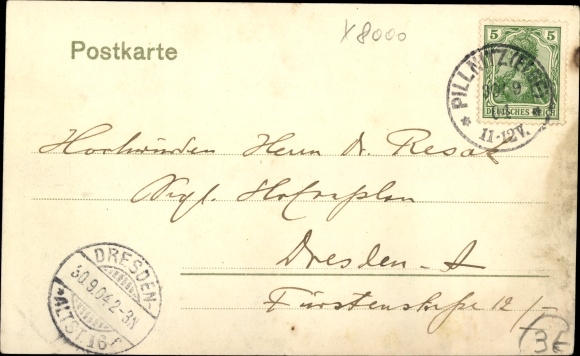 x 8000
Postkarte
5 5
DEUTSCHES REICH
PILLNITZ (ELBE)
30 9
04
11-12V.
Hochwürden Herrn Dr. Resak
Kgl. Hofcaplan
Dresden-A
Fürstenstraße 12/-
DRESDEN
30.9.04.2-3N
*ALTST. 16 f
36